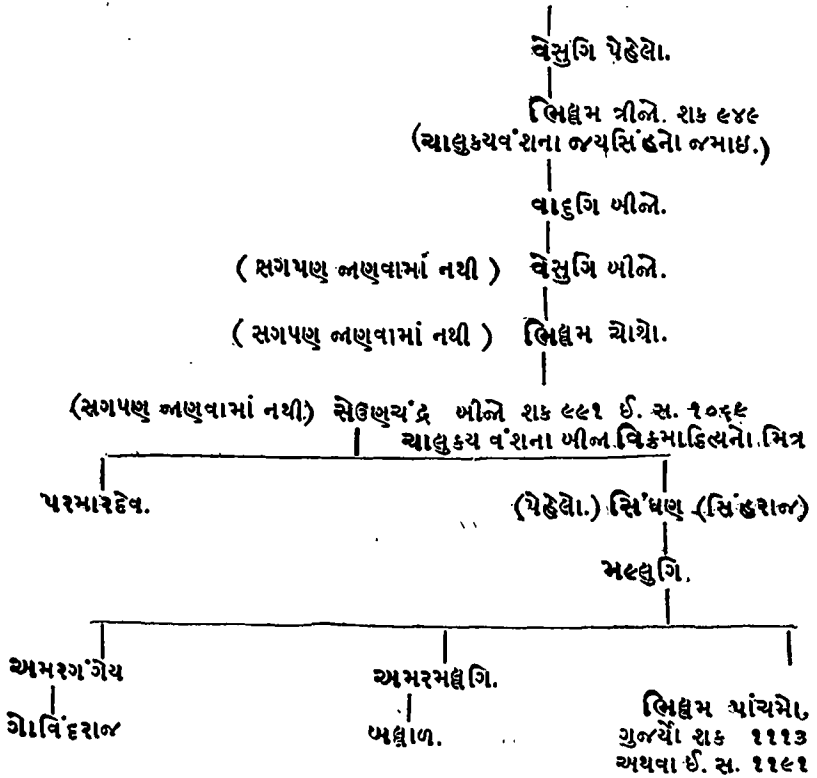 વેસુગિ પેહેલો.
ભિલ્લમ ત્રીજો. શક ૯૪૯
(ચાલુકયવંશના જયસિંહનો જમાઇ.)
વાદુગિ બીજો.
(સગપણ જાણવામાં નથી) વેસુગિ બીજો.
(સગપણ જાણવામાં નથી) ભિલ્લમ ચોથો.
(સગપણ જાણવામાં નથી.) સેઉણચંદ્ર બીજો શક ૯૯૧ ઈ. સ. ૧૦૬૯
ચાલુકય વંશના બીજા વિક્રમાદિત્યનો મિત્ર
પરમારદેવ. (પેહેલો.) સિંઘણ (સિંહરાજ)
મલ્લુગિ.
અમરગંગેય અમરમલ્લગિ. ભિલ્લમ પાંચમો,
ગોવિંદરાજ બલ્લાળ. ગુજર્યો શક ૧૧૧૩
અથવા ઈ. સ. ૧૧૯૧